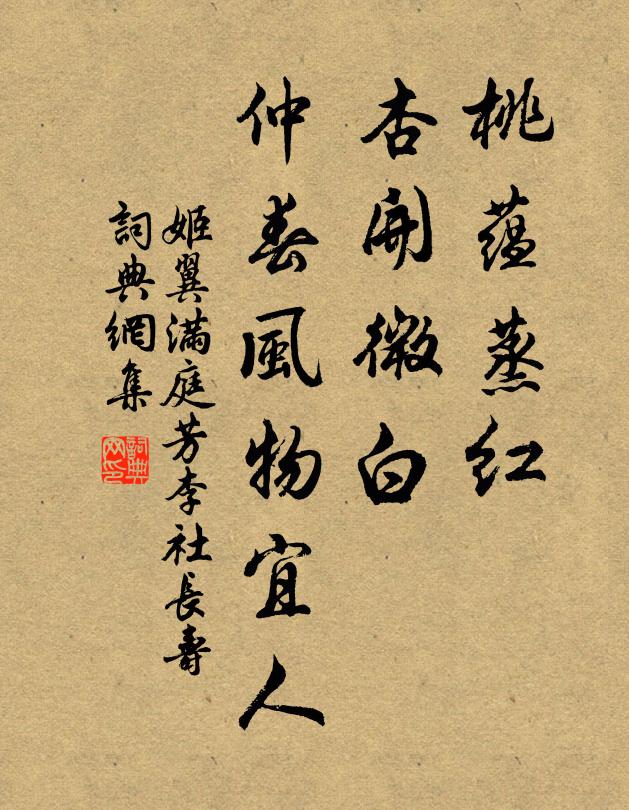 桃蕴蒸红
杏開微白
仲春風物宜人
姬翼满庭芳李社長壽
詞典網集
詞典网印